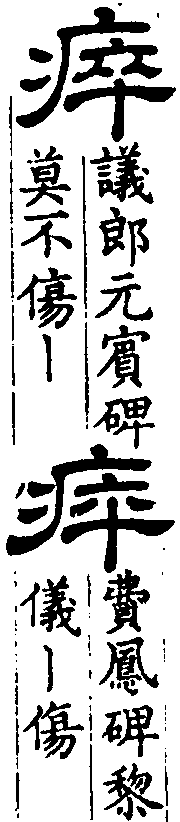 瘁
議郎元賓碑
莫不傷丨
瘁
費鳳碑黎
儀丨傷